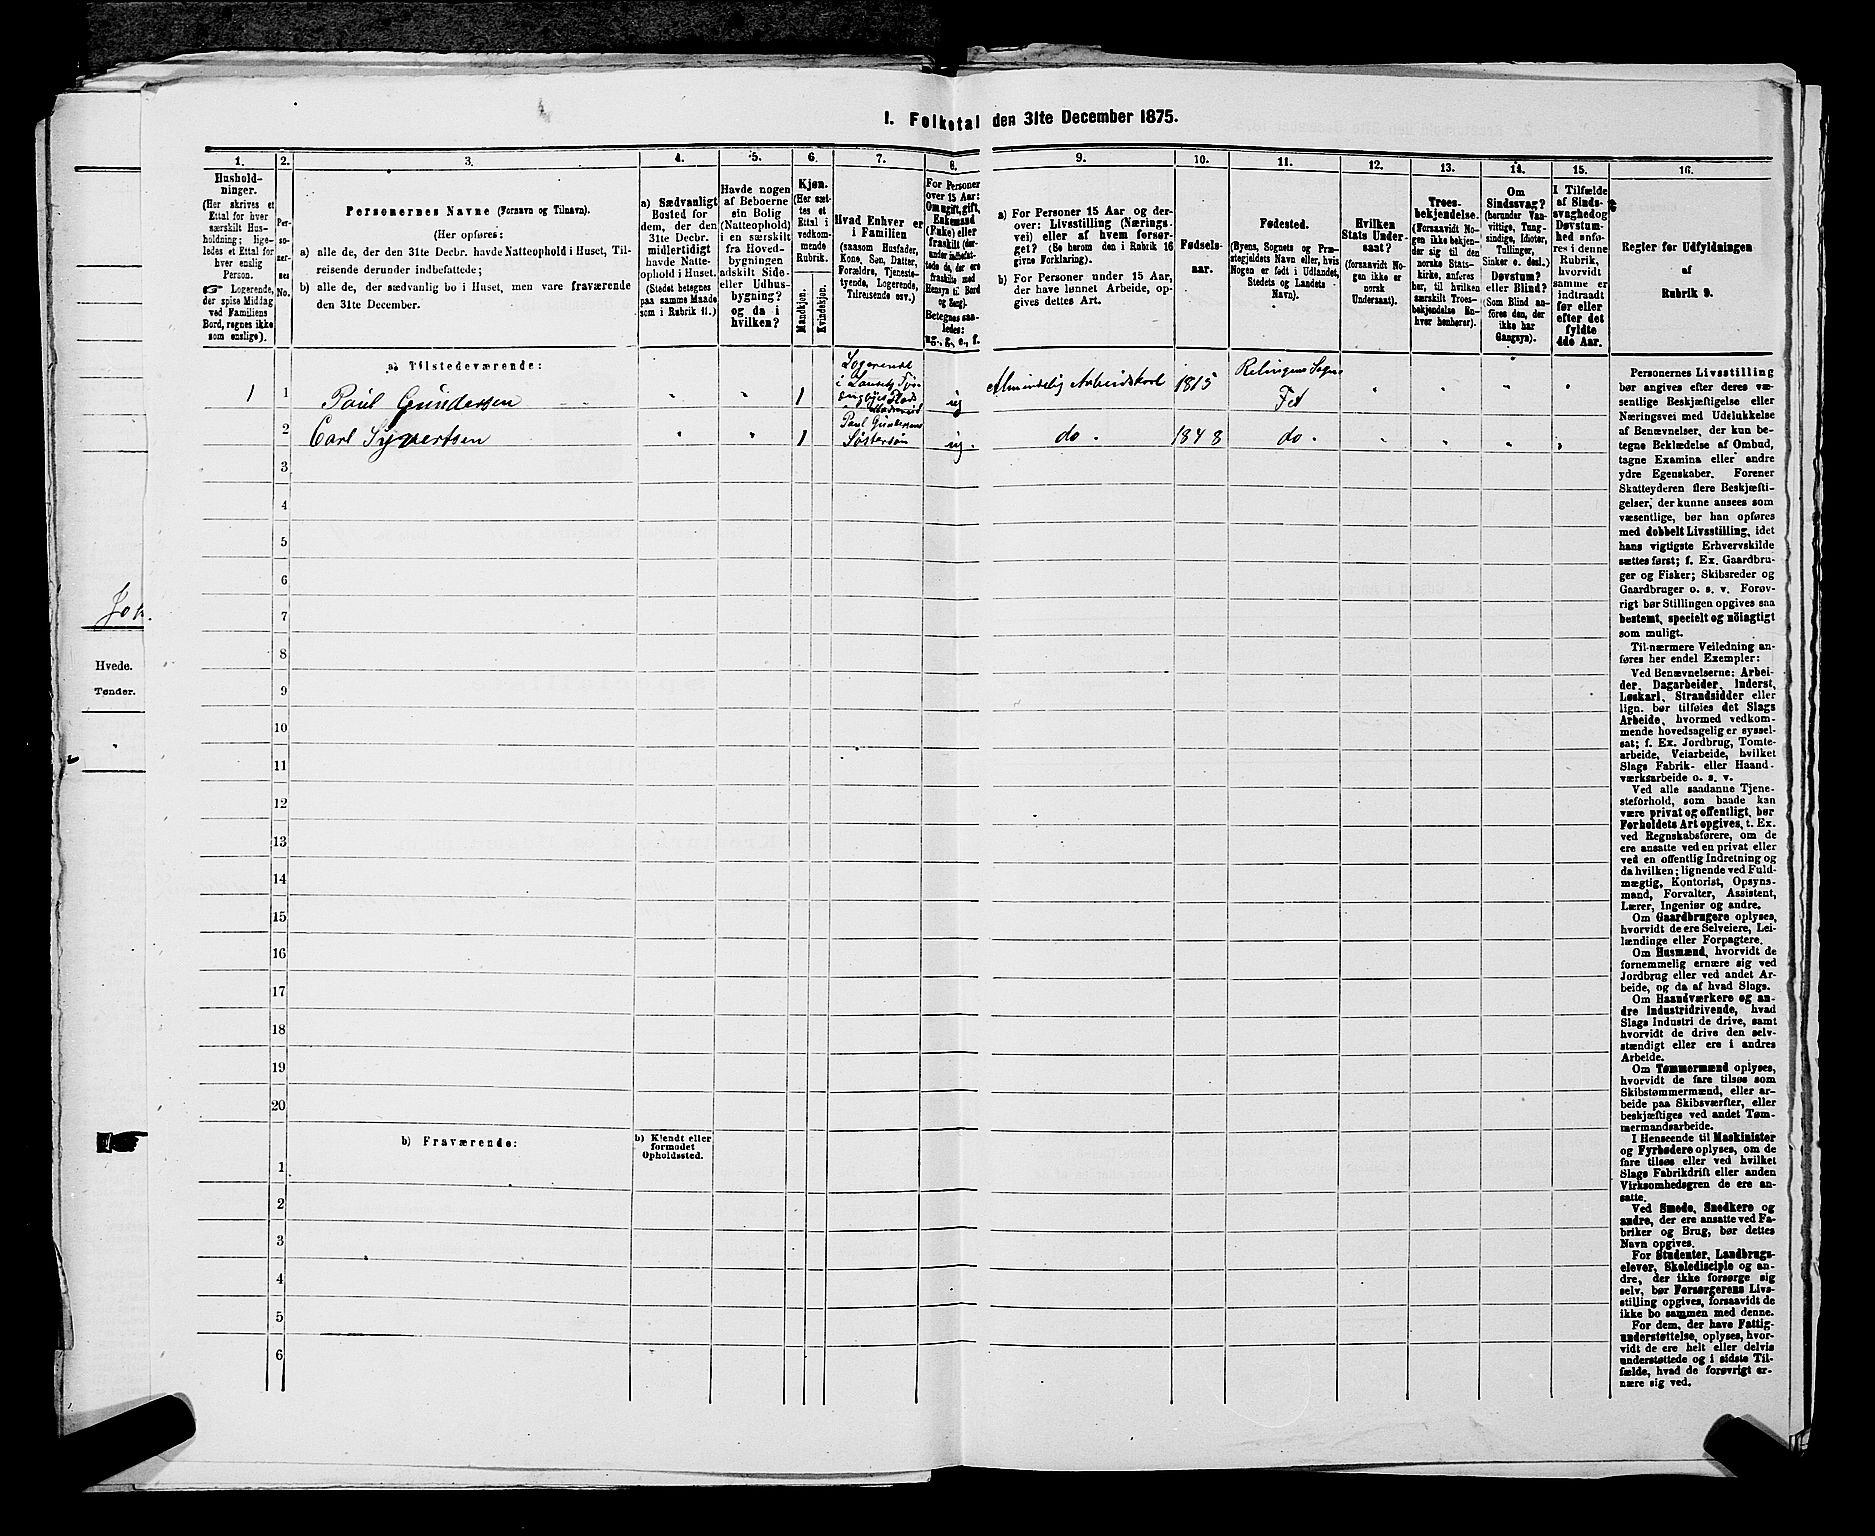 I. Folketal den 31te December 1875.
1.
Hushold-
ninger.
(Her skrives et
Ettal for hver
særskilt Hus-
holdning; lige-
ledes et Ettal for
hver enslig
Person.
Logerende,
der spise Middag
ved Familiens
Bord, regnes ikke
som enslige).
2.
Per-
so-
ner-
nes
No.
3.
Personernes Navne (Fornavn og Tilnavn).
(Her opføres:
a) alle de, der den 31te Decbr. havde Natteophold i Huset, Til-
reisende derunder indbefattede;
b) alle de, der sædvanlig bo i Huset, men vare fraværende
den 31te December.
4.
a) Sædvanligt
Bosted for
dem, der den
31te Decbr.
midlertidigt
havde Natte-
ophold i Huset.
(Stedet betegnes
paa samme Maade
som i Rubrik 11.)
5.
Havde nogen
af Beboerne
sin Bolig
(Natteophold)
i en særskilt
fra Hoved-
bygningen
adskilt Side-
eller Udhus-
bygning?
og da i
hvilken?
6.
Kjøn.
(Her sæt-
tes et
Ettal i
vedkom-
mende
Rubrik.
Mandkjøn.
Kvindekjøn.
7.
Hvad Enhver er
i Familien
(saasom Husfader,
Kone, Søn, Datter,
Forældre, Tjeneste-
tyende, Logerende,
Tilreisende osv.).
8.
For Personer
over 15 Aar:
Om ugift, gift,
Enkemand
(Enke) eller
fraskilt (der-
under indbefat-
tede de, der ere
fraskilte med
Hensyn til Bord
og Seng).
Betegnes saa-
ledes:
ug., g., e., f.
9.
a) For Personer 15 Aar og der-
over: Livsstilling (Nærings-
vei) eller af hvem forsør-
get? (Se herom den i Rubrik 16
givne Forklaring).
b) For Personer under 15 Aar,
der have lønnet Arbeide, op-
gives dettes Art.
10.
Fødsels-
aar.
11.
Fødested.
(Byens, Sognets og Præ-
stegjeldets Navn eller, hvis
Nogen er født i Udlandet,
Stedets og Landets
Navn).
12.
Hvilken
Stats Under-
saat?
(forsaavidt No-
gen ikke er
norsk
Undersaat).
13.
Troes-
bekjendelse.
(Forsaavidt No-
gen ikke bekjen-
der sig til den
norske Stats-
kirke, anføres
her, til hvilken
særskilt Troes-
bekjendelse En-
hver henhører).
14.
Om
Sindssvag?
(herunder Van-
vittige, Tung-
sindige, Idioter,
Tullinger,
Sinker o. desl.)
Døvstum?
eller Blind?
(Som Blind an-
føres den, der
ikke har
Gangsyn).
15.
I Tilfælde
af Sinds-
svaghed og
Døvstum-
hed anfø-
res i denne
Rubrik,
hvorvidt
samme er
indtraadt
før eller
efter det
fyldte
4de Aar.
16.
Regler for Udfyldningen
af
Rubrik 9.
a) Tilstedeværende:
1 1 Paul Gundersen " " 1 Logerende i ug Almindelig Arbeidskarl 1815 Relingens Sogn Fet " " " "
2 Carl Sypertsen " " 1 Paul Gundersens Søstersøn ug. do. 1848 do. " " " "
3
4
5
6
7
8
9
10
11
12
13
14
15
16
17
18
19
20
b) Fraværende:
b) Kjendt eller
formodet
Opholdssted.
1
2
3
4
5
6
Personernes Livsstilling
bør angives efter deres væ-
sentlige Beskjæftigelse eller
Næringsvei med Udelukkelse
af Benævnelser, der kun be-
tegne Beklædelse af Ombud,
tagne Examina eller andre
ydre Egenskaber. Forener
Skatteyderen flere Beskjæfti-
gelser, der kunne ansees som
væsentlige, bør han opføres
med dobbelt Livsstilling, idet
hans vigtigste Erhvervskilde
sættes først; f. Ex. Gaardbru-
ger og Fisker; Skibsreder og
Gaardbruger o. s. v. Forøv-
rigt bør Stillingen opgives saa
bestemt, specielt og nöiagtigt
som muligt.
Til nærmere Veiledning an-
føres her endel Exempler:
Ved Benævnelserne: Arbei-
der, Dagarbeider, Inderst,
Løskarl, Strandsidder eller
lign. bør tilføies det Slags
Arbeide, hvormed vedkom-
mende hovedsagelig er syssel-
sat; f. Ex. Jordbrug, Tomte-
arbeide, Veiarbeide, hvilket
Slags Fabrik- eller Haand-
værksarbeide o. s. v.
Ved alle saadanne Tjene-
steforhold, som baade kan
være privat og offentligt, bør
Forholdets Art opgives, t. Ex.
ved Regnskabsførere, om de
ere ansatte ved en privat eller
ved en offentlig Indretning og
da hvilken; lignende ved Fuld-
mægtig, Kontorist, Opsyns-
mand, Forvalter, Assistent,
Lærer, Ingeniør og andre.
Om Gaardbrugere oplyses,
hvorvidt de ere Selveiere, Lei-
lændinge eller Forpagtere.
Om Husmænd, hvorvidt de
fornemmelig ernære sig ved
Jordbrug eller ved andet Ar-
beide, og da af hvad Slags.
Om Haandværkere og an-
dre Industridrivende, hvad
Slags Industri de drive, samt
hvorvidt de drive den selv-
stændigt eller ere i andres
Arbeide.
Om Tømmermænd oplyses,
hvorvidt de fare tilsøs som
Skibstømmermænd, eller ar-
beide paa Skibsværfter, eller
beskjæftiges ved andet Tøm-
mermandsarbeide.
I Henseende til Maskinister
og Fyrbødere oplyses, om de
fare tilsøs eller ved hvilket
Slags Fabrikdrift eller anden
Virksomhedsgren de ere an-
satte.
Ved Smede, Snedkere og
andre, der ere ansatte ved Fa-
briker og Brug, bør dettes
Navn opgives.
For Studenter, Landbrugs-
elever, Skoledisciple og an-
dre, der ikke forsørge sig
selv, bør Forsørgerens Livs-
stilling opgives, forsaavidt de
ikke bo sammen med denne.
For dem, der have Fattig-
understøttelse, oplyses, hvor-
vidt de ere helt eller delvis
understøttede og i sidste Til-
fælde, hvad de forøvrigt er-
nære sig ved.
Hvede.
Tønder.